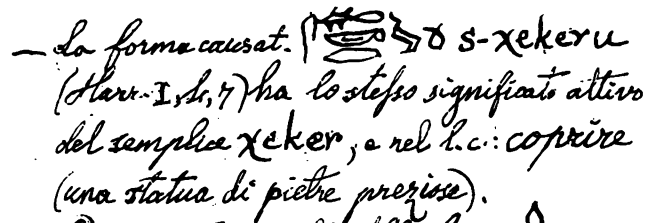 — La forma causat. s-χekeru
(Harr. I, 4, 7) ha lo stesso significato attivo
del semplice χeker, e nel l.c.: coprire
(una statua di pietre preziose).